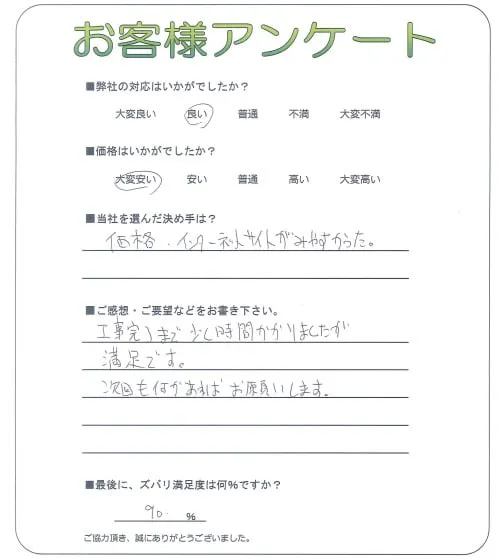 お客様アンケート
■弊社の対応はいかがでしたか？
大変良い 良い 普通 不満 大変不満
■価格はいかがでしたか？
大変安い 安い 普通 高い 大変高い
■当社を選んだ決め手は？
価格・インターネットサイトがみやすかった。
■ご感想・ご要望などをお書き下さい。
工事完了まで少し時間かかりましたが
満足です。
次回も何かあればお願いします。
■最後に、ズバリ満足度は何％ですか？
90. ％
ご協力頂き、誠にありがとうございました。